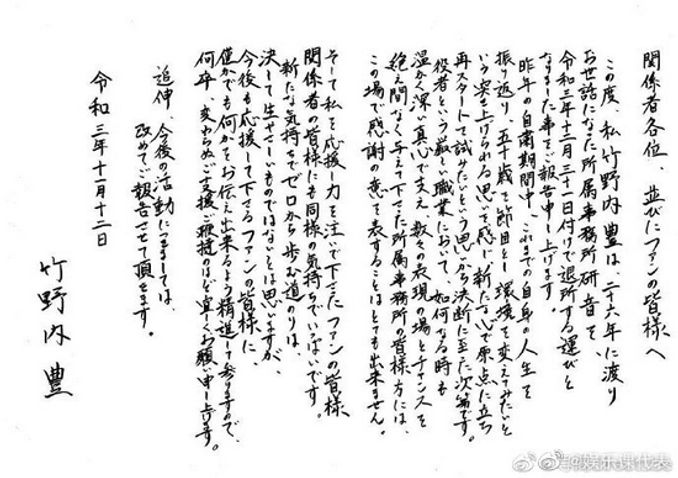 関係者各位、並びにファンの皆様へ
この度、私竹野内豊は、二十六年に渡り
お世話になった所属事務所研音を、
令和三年十二月三十一日付けで退所する運びと
なりました事をご報告申し上げます。
昨年の自粛期間中、これまでの自身の人生を
振り返り、五十歳を節目とし環境を変えてみたいと
いう突き上げられる思いを感じ、新たな心で原点に立ち
再スタートして試みたいという思いから決断に至った次第です。
役者という厳しい職業において、如何なる時も
温かく深い真心で支え、数々の表現の場とチャンスを
絶え間なく与えて下さった所属事務所の皆様方には、
この場で感謝の意を表することはとても出来ません。
そして私を応援し力を注いで下さったファンの皆様
関係者の皆様にも同様の気持ちでいっぱいです。
新たな気持ちでゼロから歩む道のりは、
決して生やさしいものではないとは思いますが、
今後も応援して下さるファンの皆様に、
僅かでも何かをお伝え出来るよう精進して参りますので、
何卒、変わらぬご支援ご維持のほど宜しくお願い申し上げます。
追伸、今後の活動につきましては、
改めてご報告させて頂きます。
令和三年十一月十二日
竹野内豊
娱乐课代表